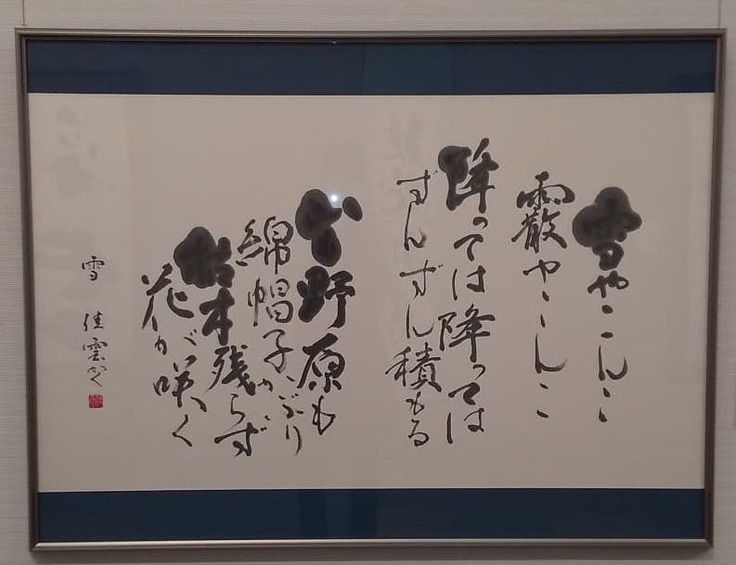 雪やこんこ
霰やこんこ
降っては降っては
ずんずん積もる
山も野原も
綿帽子かぶり
枯木残らず
花が咲く
雪 佳雲かく